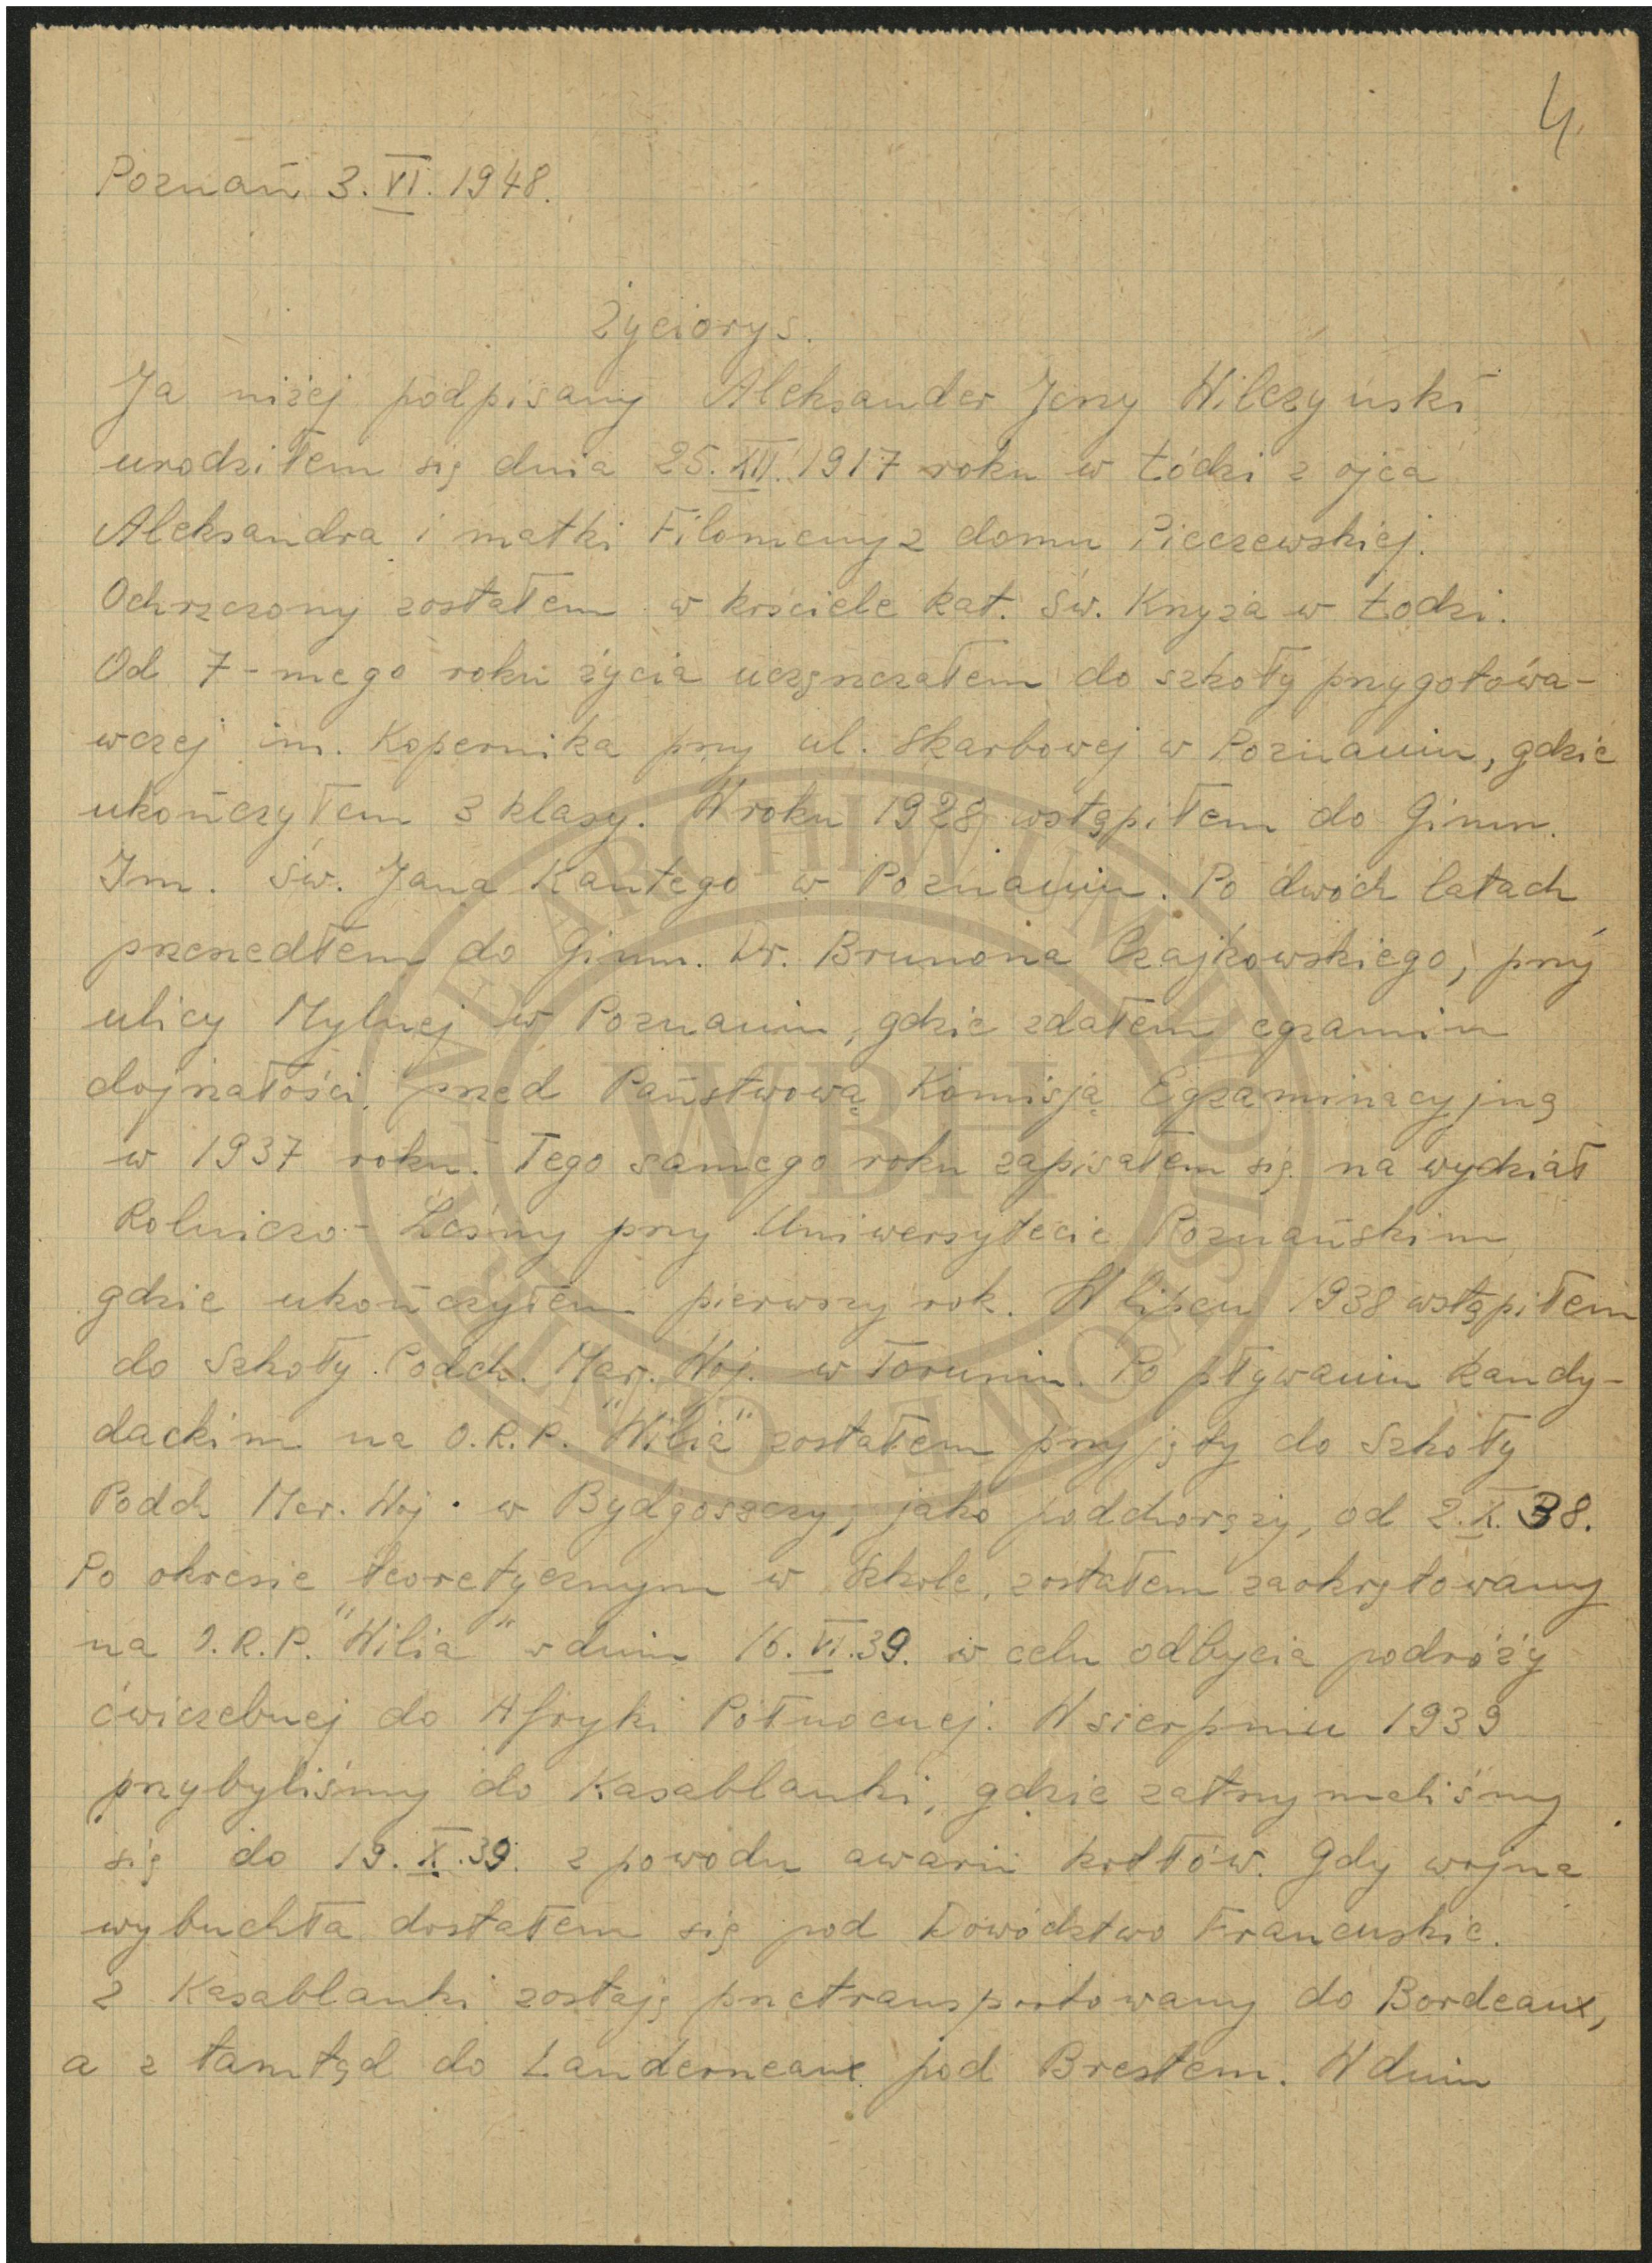 4.
Poznań 3.VI.1948.
Życiorys.
Ja niżej podpisany Aleksander Jerzy Wilczyński
urodziłem się dnia 25.XII.1917 roku w Łódzi z ojca
Aleksandra i matki Filomeny z domu Pieczewskiej.
Ochrzczony zostałem w kościele kat. św. Krzyża w Łodzi.
Od 7-mego roku życia uczęszczałem do szkoły przygotowa-
wczej im. Kopernika przy ul. Skarbowej w Poznaniu, gdzie
ukończyłem 3 klasy. W roku 1928 wstąpiłem do Gimn.
Im. św. Jana Kantego w Poznaniu. Po dwóch latach
przeszedłem do Gimn. Dr. Brunona Czajkowskiego, przy
ulicy Mylnej w Poznaniu, gdzie zdałem egzamin
dojrzałości, przed Państwową Komisją Egzaminacyjną
w 1937 roku. Tego samego roku zapisałem się na wydział
Rolniczo-Leśny przy Uniwersytecie Poznańskim
gdzie ukończyłem pierwszy rok. W lipcu 1938 wstąpiłem
do Szkoły Podch. Mar. Woj. w Toruniu. Po pływaniu kandy-
dackim na O.R.P. "Wilia" zostałem przyjęty do Szkoły
Podch Mar. Woj. w Bydgoszczy, jako podchorąży, od 2.X.38.
Po okresie teoretycznym w Szkole, zostałem zaokrętowany
na O.R.P. "Wilia" w dniu 16.VI.39. w celu odbycia podróży
ćwiczebnej do Afryki Północnej. W sierpniu 1939
przybyliśmy do Kasablanki, gdzie zatrzymaliśmy
się do 19.X.39. z powodu awarii kotłów. Gdy wojna
wybuchła dostałem się pod Dowództwo Francuskie.
z Kasablanki zostaję przetransportowany do Bordeaux,
a z tamtąd do Landerneaux pod Brestem. W dniu
CENTRALNE ARCHIWUM WOJSKOWE
WBH